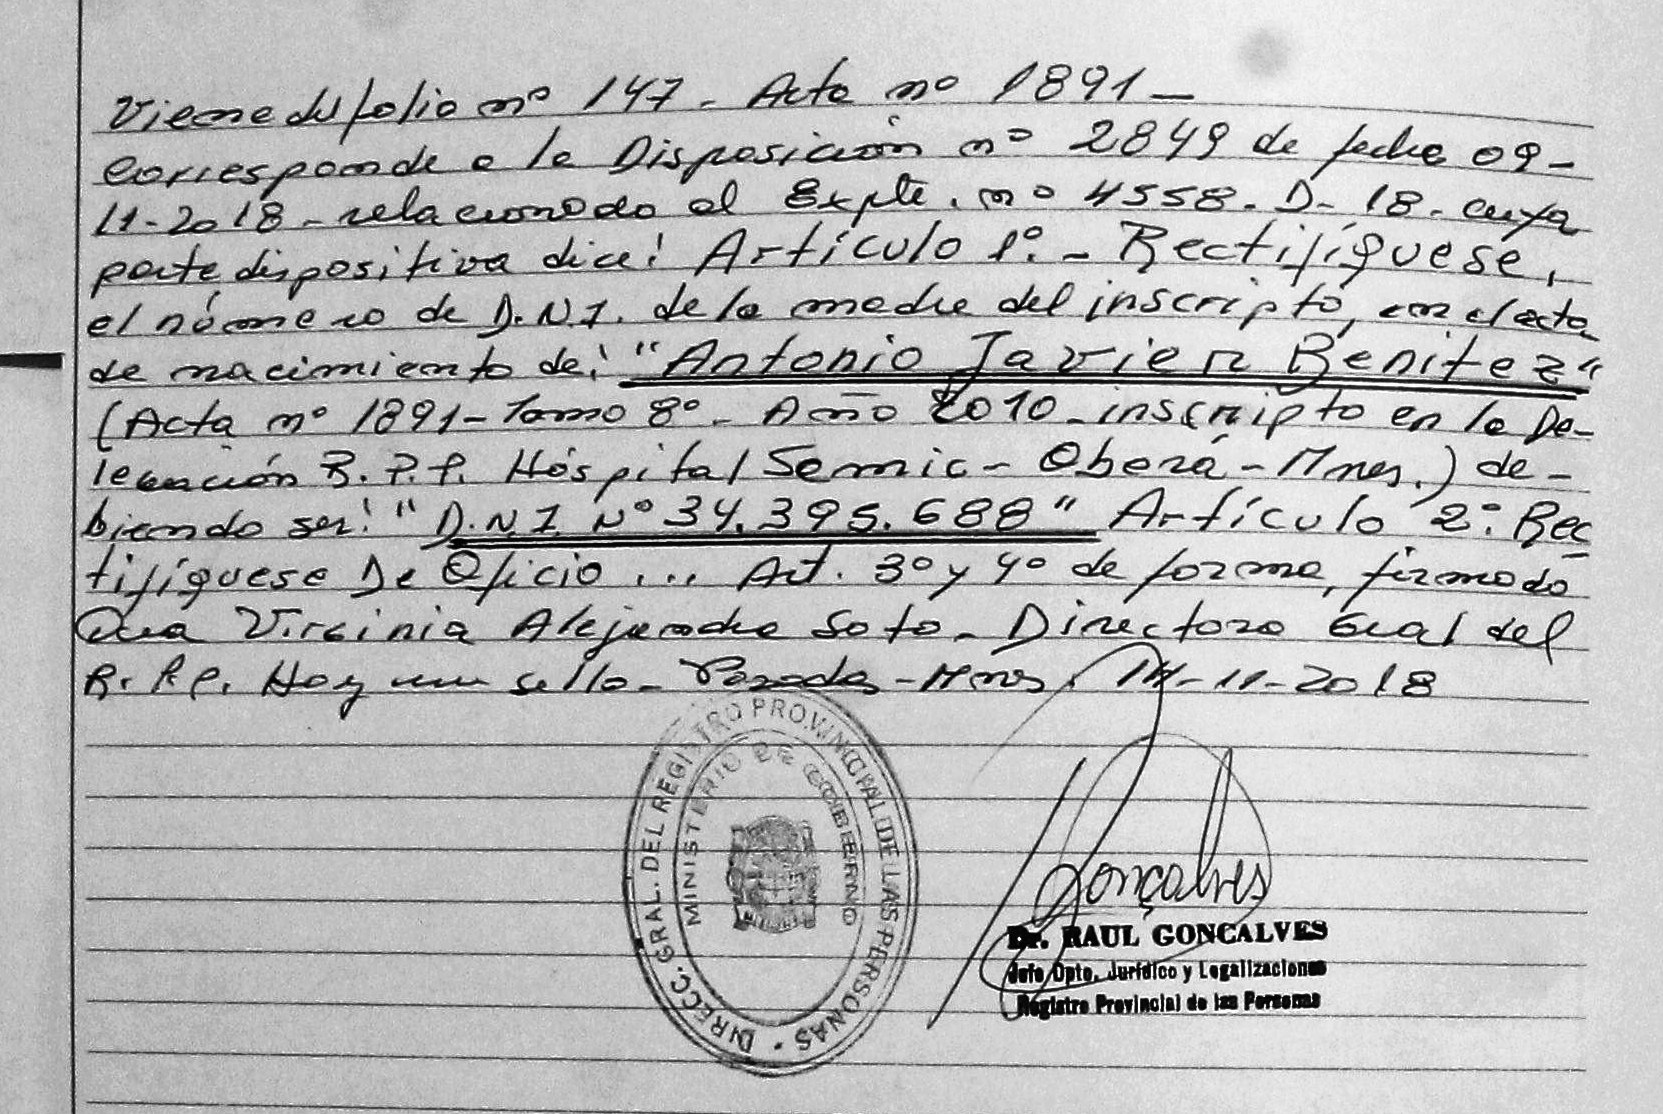 Viene del folio nº 147. Acta nº 1891 -
Corresponde a la Disposición nº 2849 de fecha 09-
11-2018 - relacionado al Expte. nº 4558. D- 18. cuya
parte dispositiva dice: Artículo 1º. - Rectifíquese,
el número de D.N.I. de la madre del inscripto, en el acta
de nacimiento de: "Antonio Javier Benitez"
(Acta nº 1891 - Tomo 8º - Año 2010 - inscripto en la De-
legación R.P.P. Hospital Samic - Oberá - Mnes.) de-
biendo ser: "D.N.I. Nº 34.395.688" Artículo 2º: Rec
tifíquese De Oficio ... Art. 3º y 4º de forma, firmado
Virginia Alejandra Soto - Directora Gral del
R.P.P. Hay un sello - Posadas - Mnes. 14-11-2018
DIRECC. GRAL. DEL REGISTRO PROVINCIAL DE LAS PERSONAS
MINISTERIO DE GOBIERNO
Gonçalves
Dr. RAUL GONCALVES
Jefe Dpto. Jurídico y Legalizaciones
Registro Provincial de las Personas